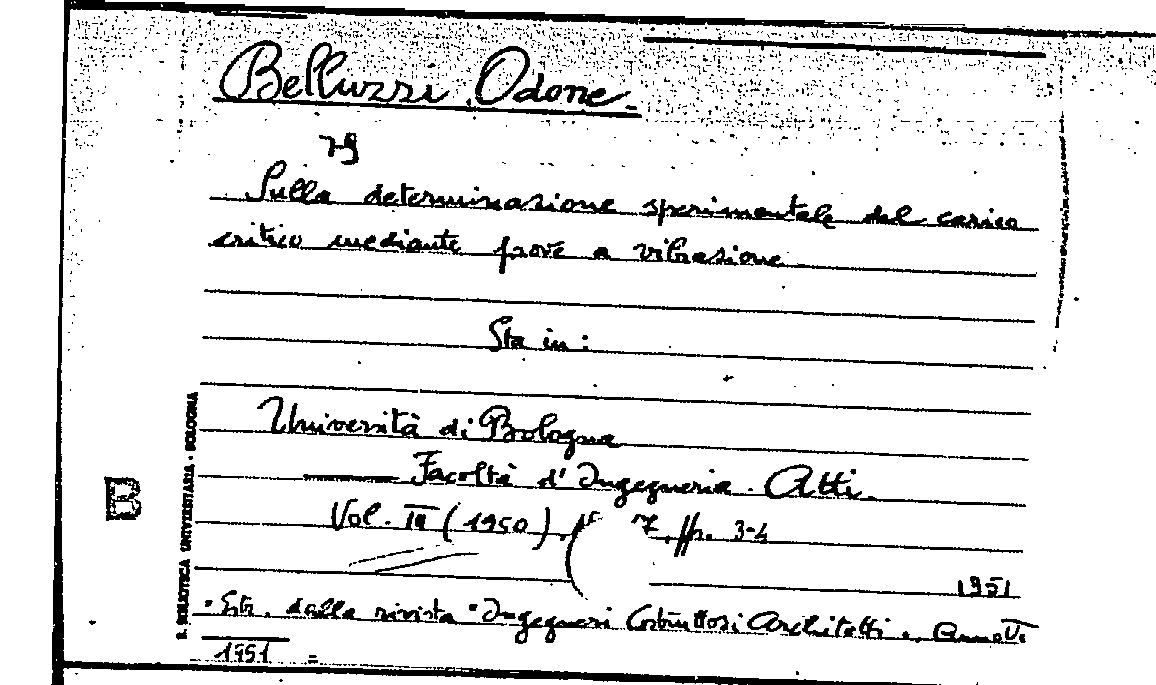 Belluzzi Odone
Sulla determinazione sperimentale del carico
critico mediante prove a vibrazione
Sta in:
Università di Bologna
Facoltà d'Ingegneria. Atti.
Vol. III (1950), 7, pp. 3-4
1951
Estr. dalla rivista "Ingegneri Costruttori Architetti", Anno VI
1951 =
B
B. BIBLIOTECA UNIVERSITARIA - BOLOGNA